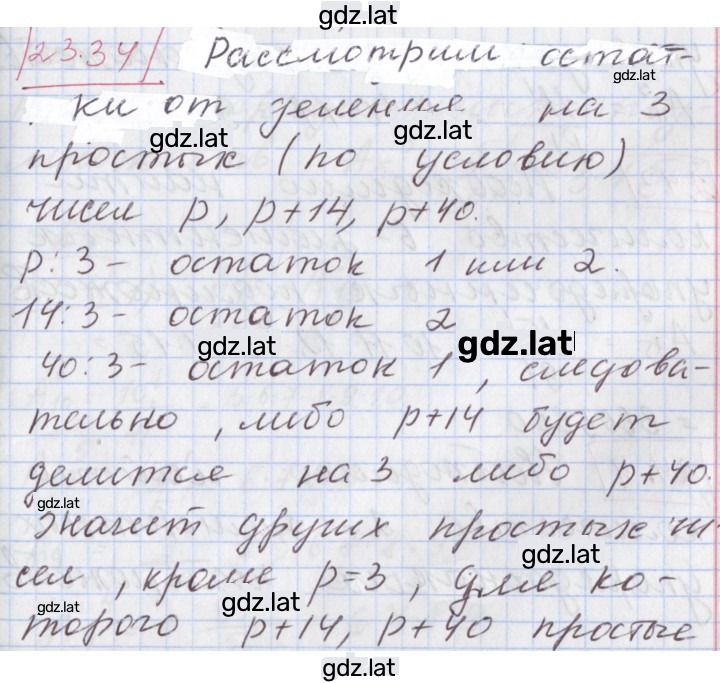 gdz.lat
23.34 Рассмотрим остат-
gdz.lat
ки от деления на 3
gdz.lat gdz.lat
простых (по условию)
чисел p, p+14, p+40.
p:3- остаток 1 или 2.
14:3- остаток 2
gdz.lat gdz.lat
40:3- остаток 1, следова-
тельно, либо p+14 будет
делится на 3 либо p+40.
gdz.lat
Значит других простых чи-
gdz.lat
сел, кроме p=3, для ко-
gdz.lat gdz.lat
торого p+14, p+40 простые
gdz.lat